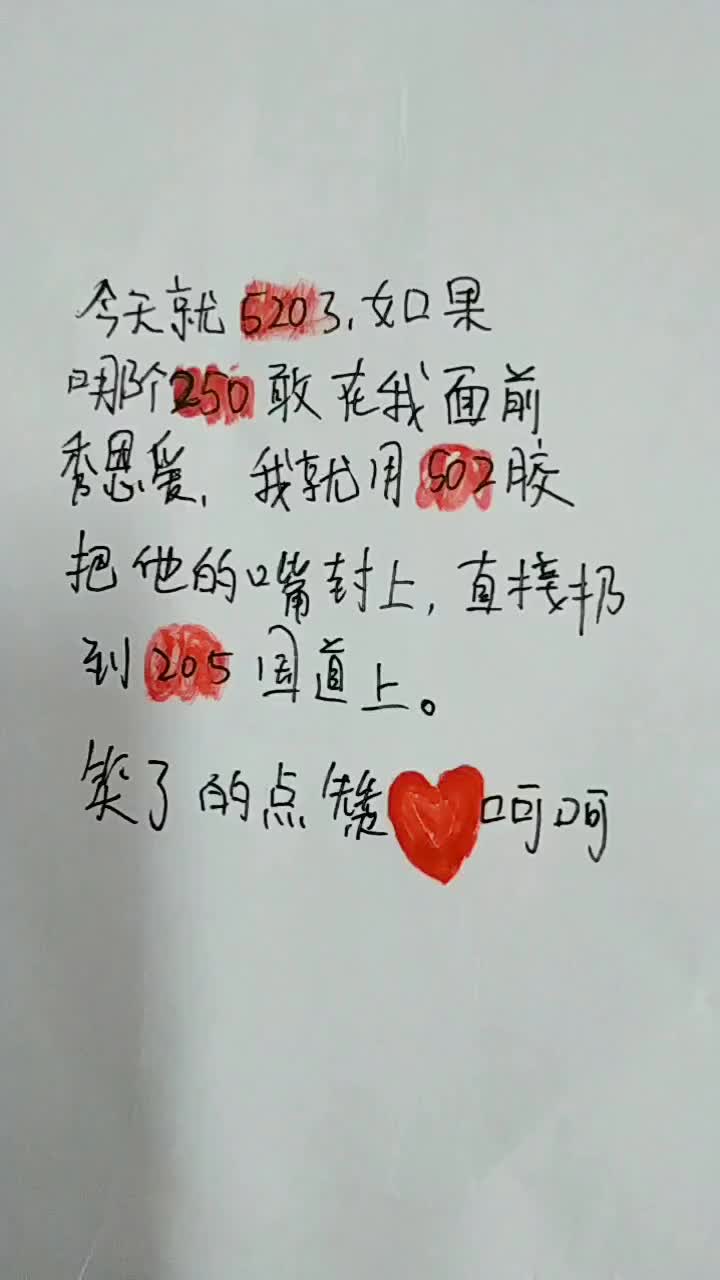 今天就520了,如果
哪个250敢在我面前
秀恩爱,我就用502胶
把他的嘴封上,直接扔
到205国道上。
笑了的点赞呵呵